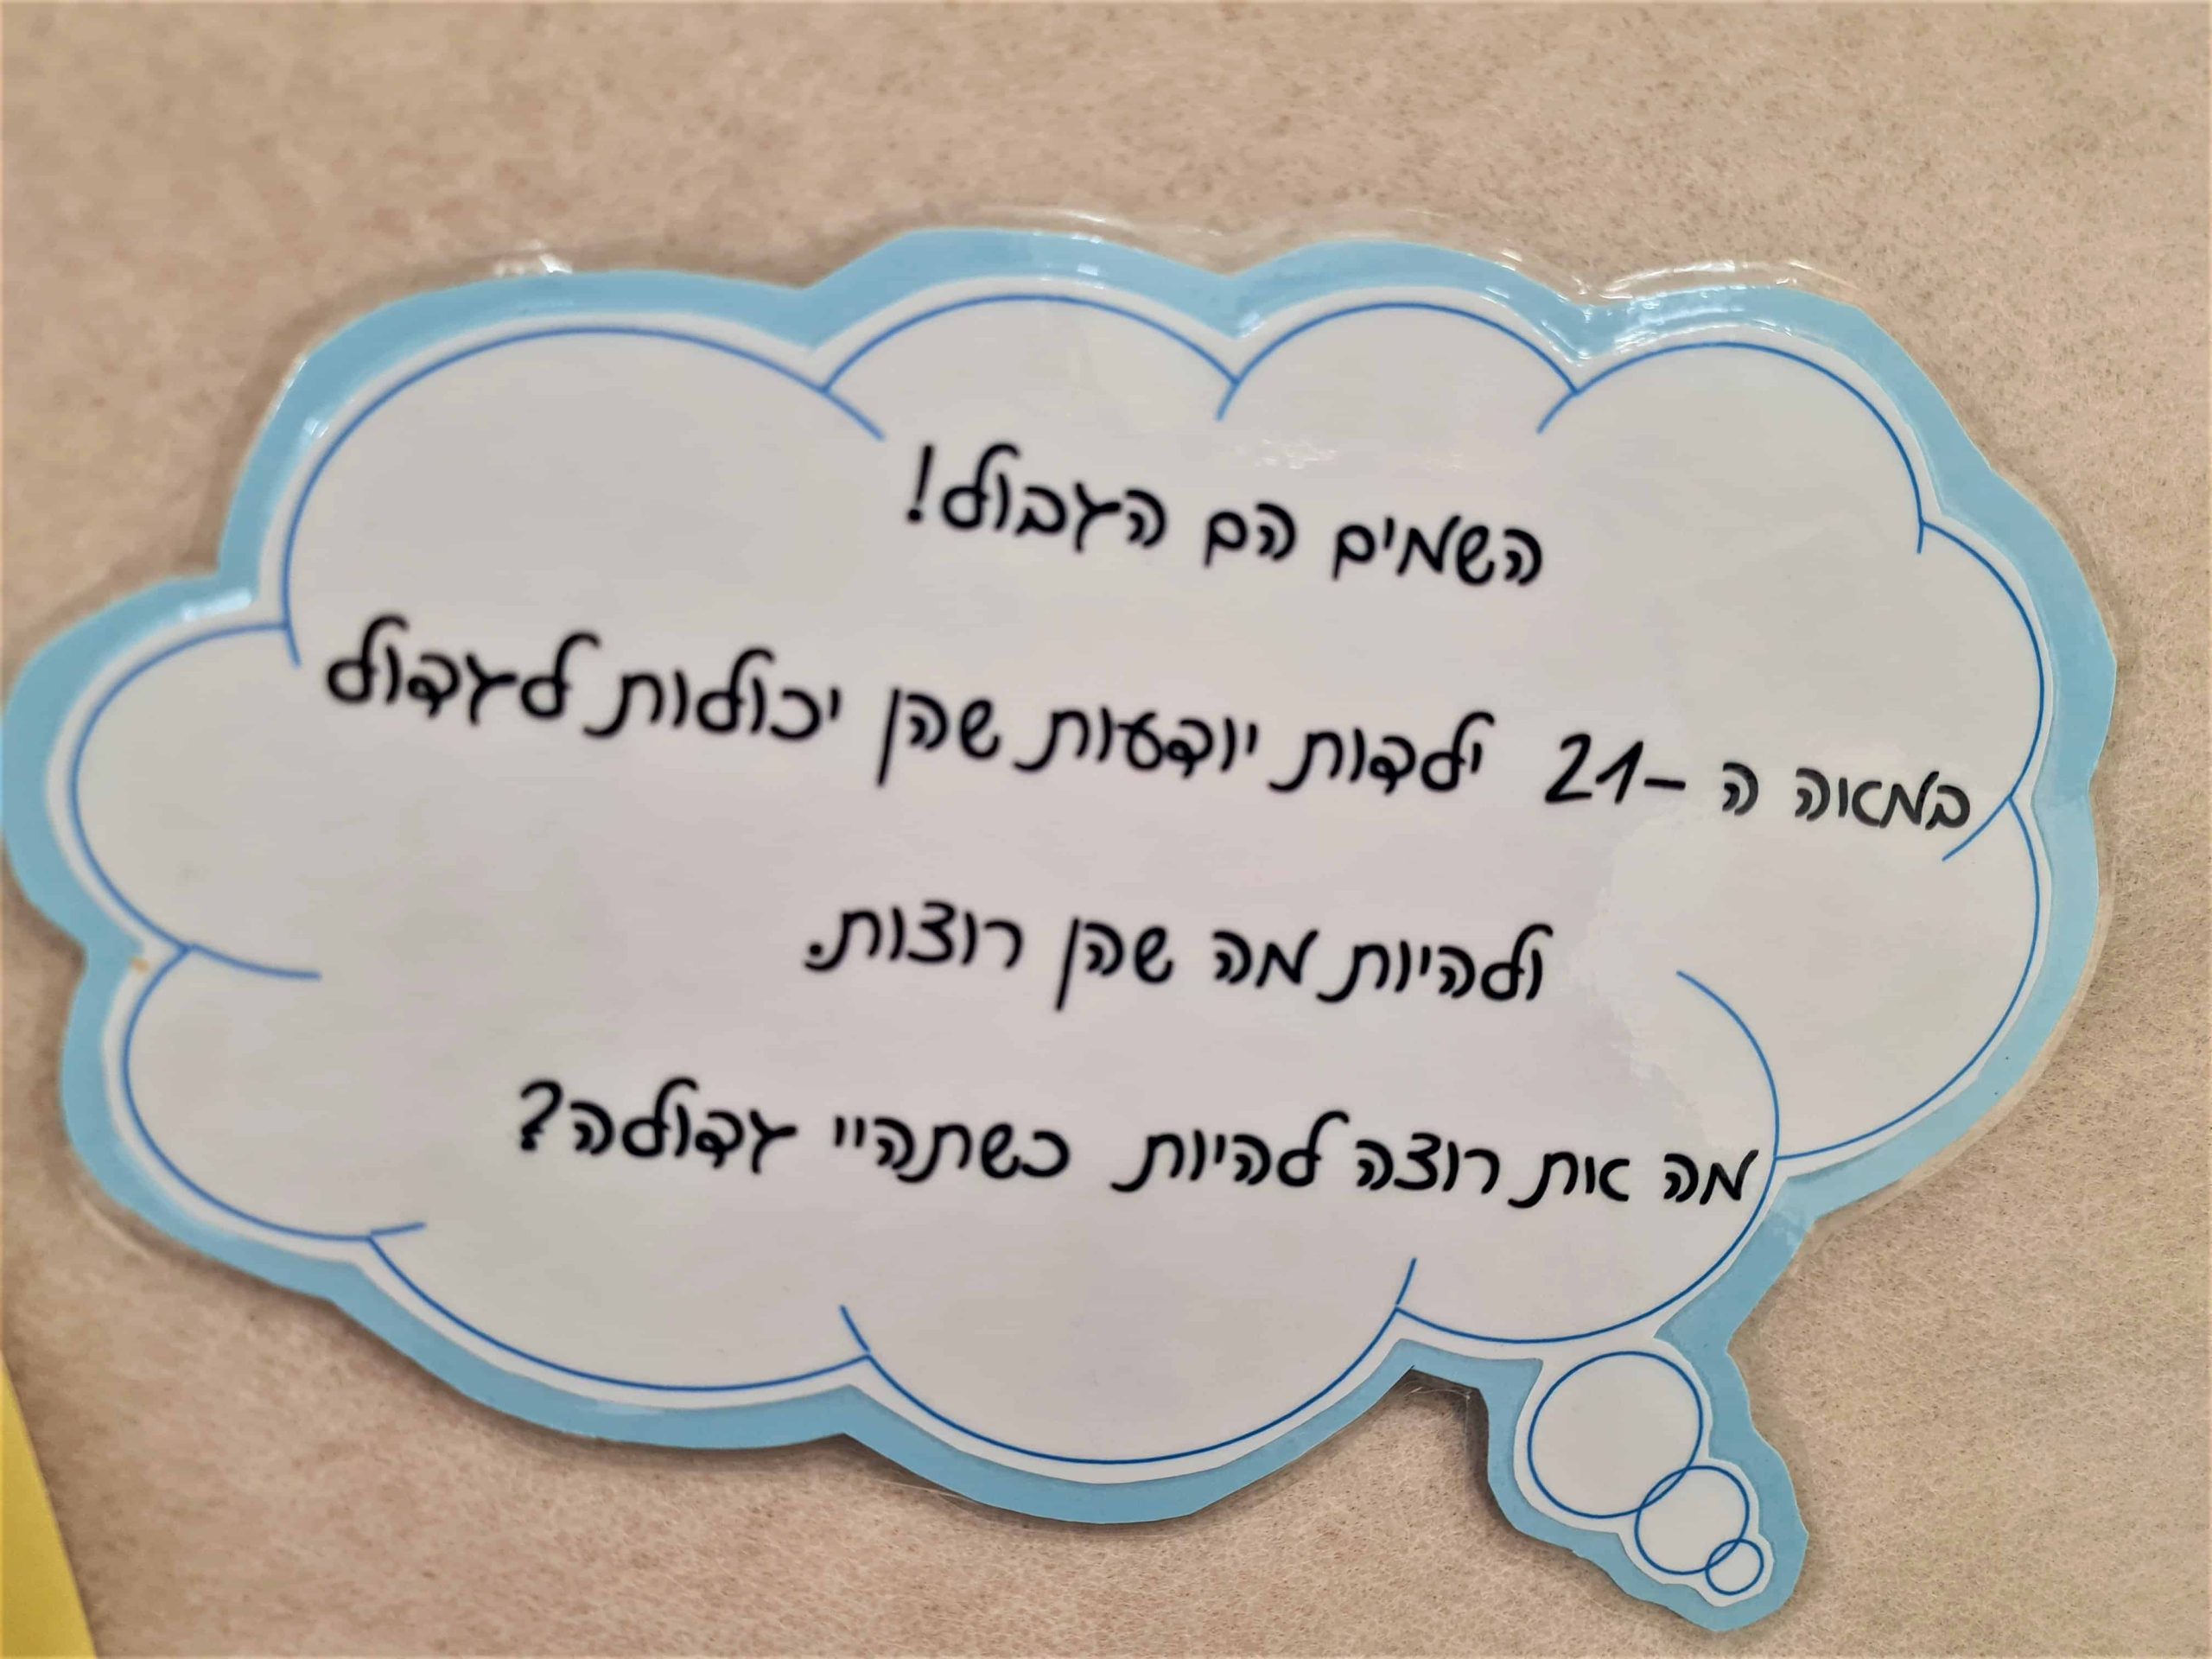 השמים הם הגבול!
במאה ה -21 ילדות יודעות שהן יכולות לגדול
ולהיות מה שהן רוצות.
מה את רוצה להיות כשתהיי גדולה?